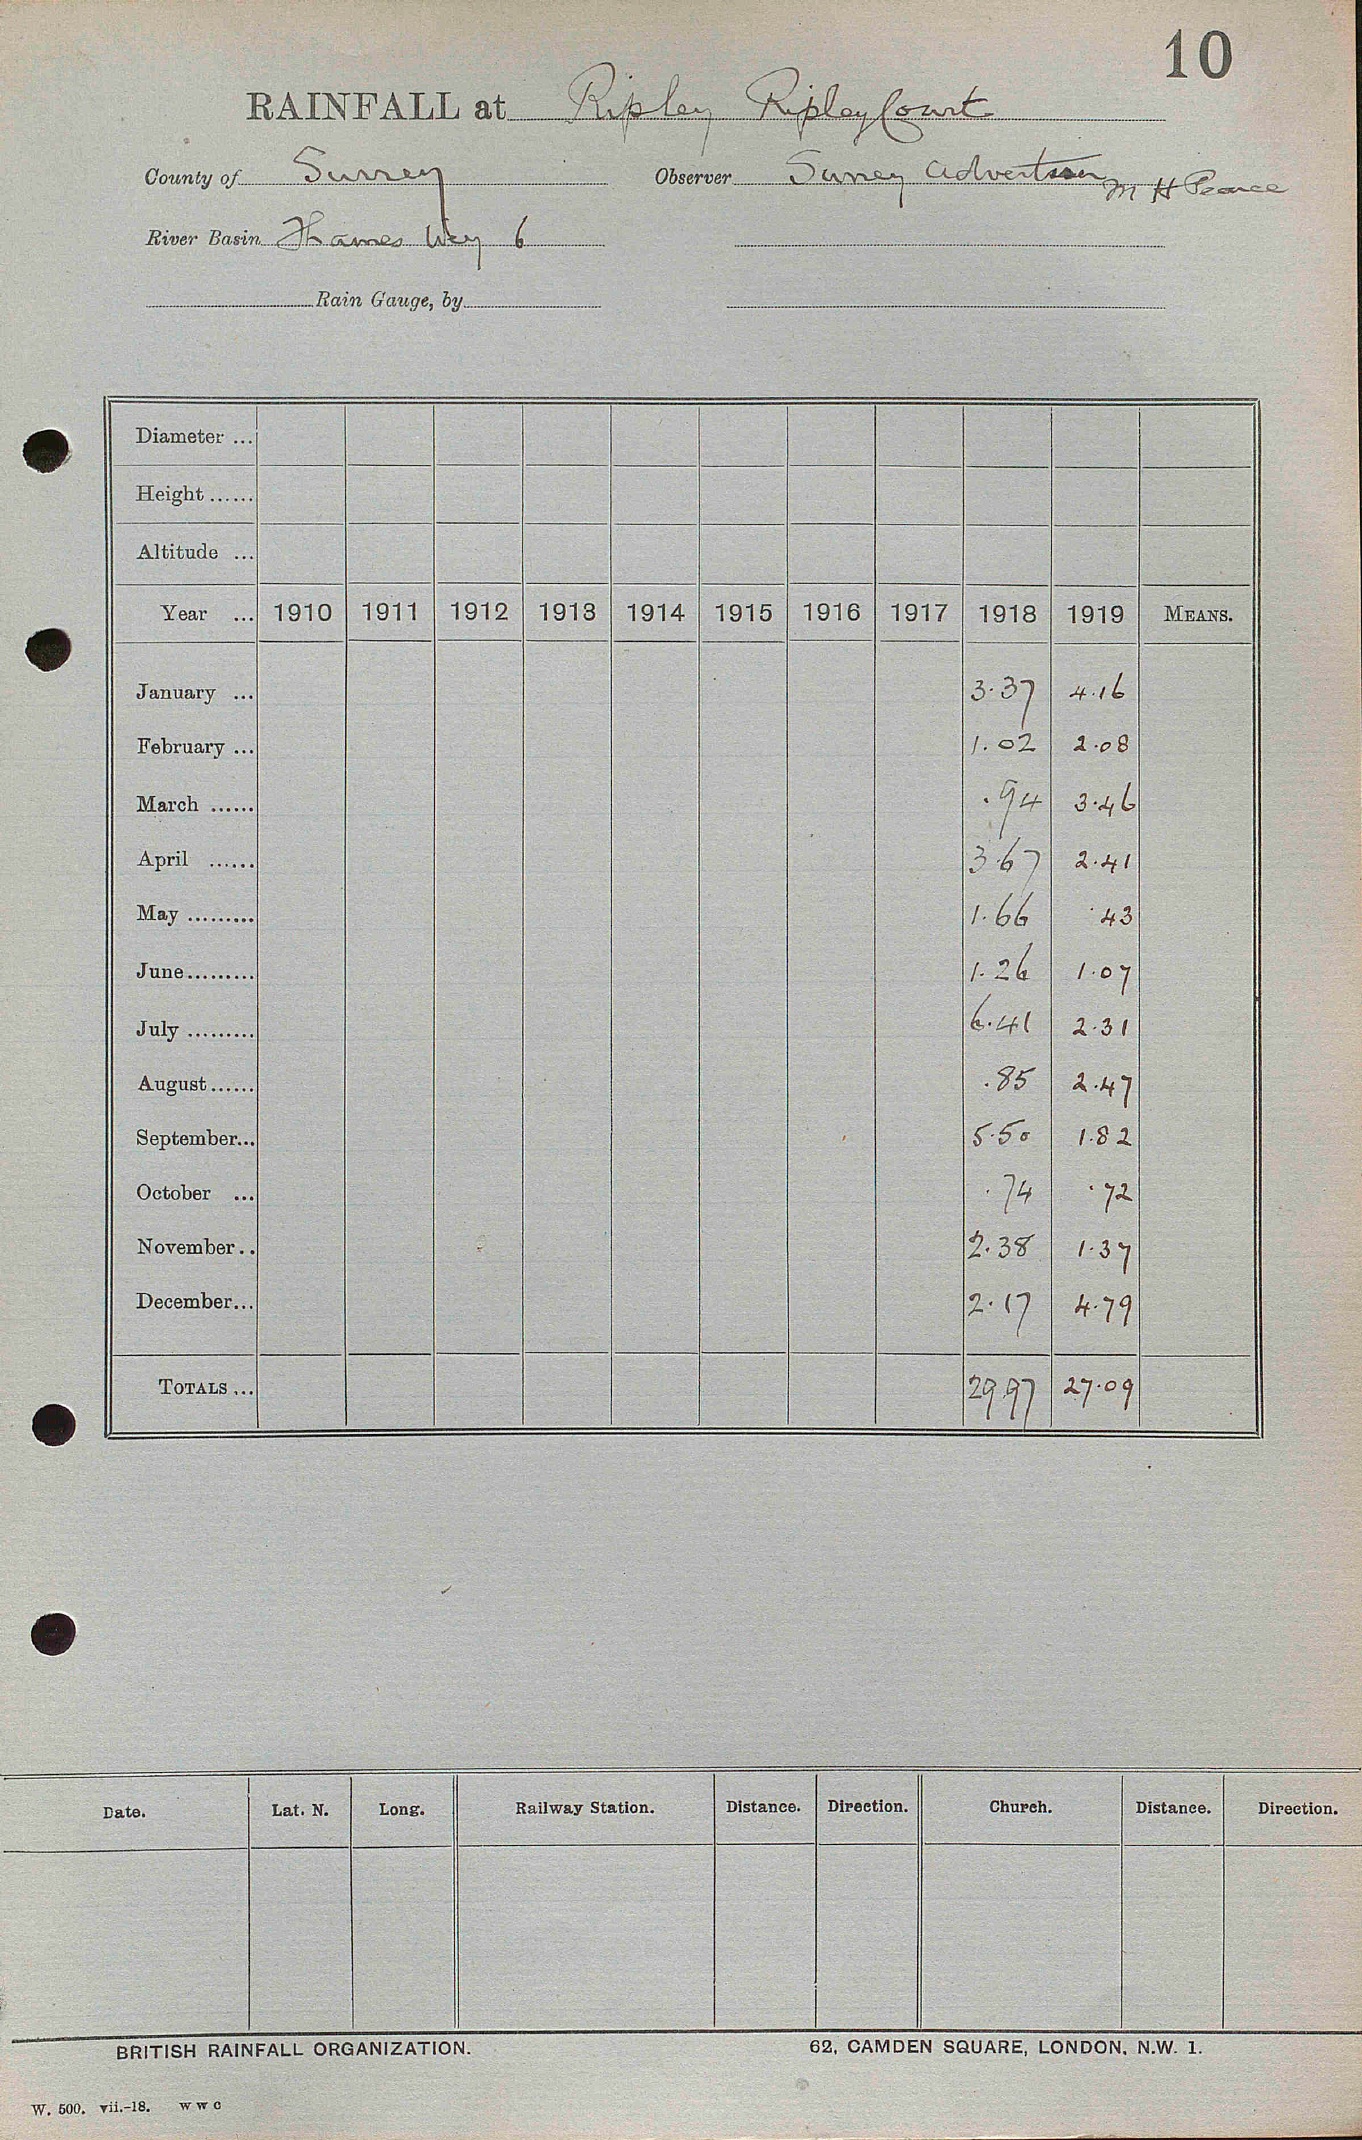 10
RAINFALL at Ripley Ripley Court
County of Surrey Observer Surrey Advertiser M H Pearce
River Basin Thames Wey 6
Rain Gauge, by
Diameter ...
Height ......
Altitude ...
Year ... 1910 1911 1912 1913 1914 1915 1916 1917 1918 1919 MEANS.
January ... 3.37 4.16
February ... 1.02 2.08
March ...... .94 3.46
April ...... 3.67 2.41
May ......... 1.66 .43
June ......... 1.26 1.07
July ......... 6.41 2.31
August ...... .85 2.47
September... 5.50 1.82
October ... .74 .72
November.. 2.38 1.37
December... 2.17 4.79
TOTALS ... 29.97 27.09
Date. Lat. N. Long. Railway Station. Distance. Direction. Church. Distance. Direction.
BRITISH RAINFALL ORGANIZATION. 62, CAMDEN SQUARE, LONDON, N.W. 1.
W. 500. vii.-18. W W C